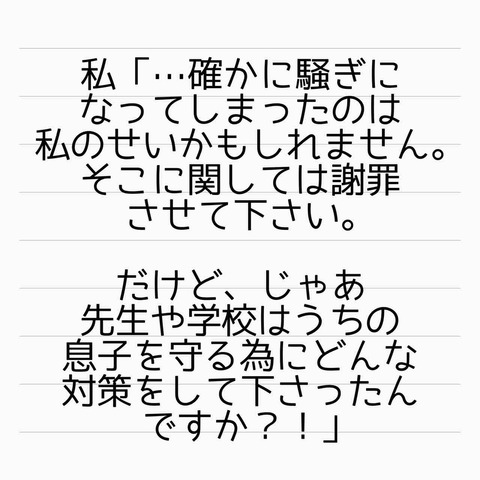 私「…確かに騒ぎに
なってしまったのは
私のせいかもしれません。
そこに関しては謝罪
させて下さい。
だけど、じゃあ
先生や学校はうちの
息子を守る為にどんな
対策をして下さったん
ですか？！」